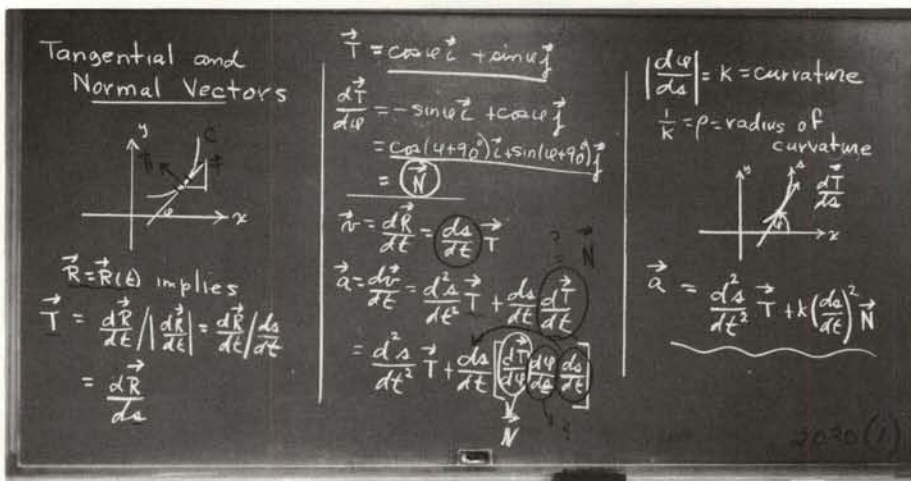 Tangential and
Normal Vectors
y
C
N⃗
T⃗
φ
x
R⃗ = R⃗(t) implies
T⃗ = dR⃗/dt / |dR⃗/dt| = dR⃗/dt / ds/dt
= dR⃗/ds
T⃗ = cosφ i⃗ + sinφ j⃗
dT⃗/dφ = -sinφ i⃗ + cosφ j⃗
= cos(φ+90°) i⃗ + sin(φ+90°) j⃗
= N⃗
v⃗ = dR⃗/dt = ds/dt T⃗
? = N⃗
a⃗ = dv⃗/dt = d²s/dt² T⃗ + ds/dt dT⃗/dt
= d²s/dt² T⃗ + ds/dt [dT⃗/dφ dφ/ds ds/dt]
N⃗ ?
|dφ/ds| = k = curvature
1/k = ρ = radius of
curvature
y
s
dT⃗/ds
φ
x
a⃗ = d²s/dt² T⃗ + k(ds/dt)² N⃗
2.020 (1)